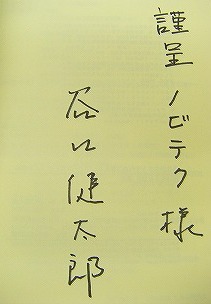 謹呈 ノビテク様
谷口健太郎